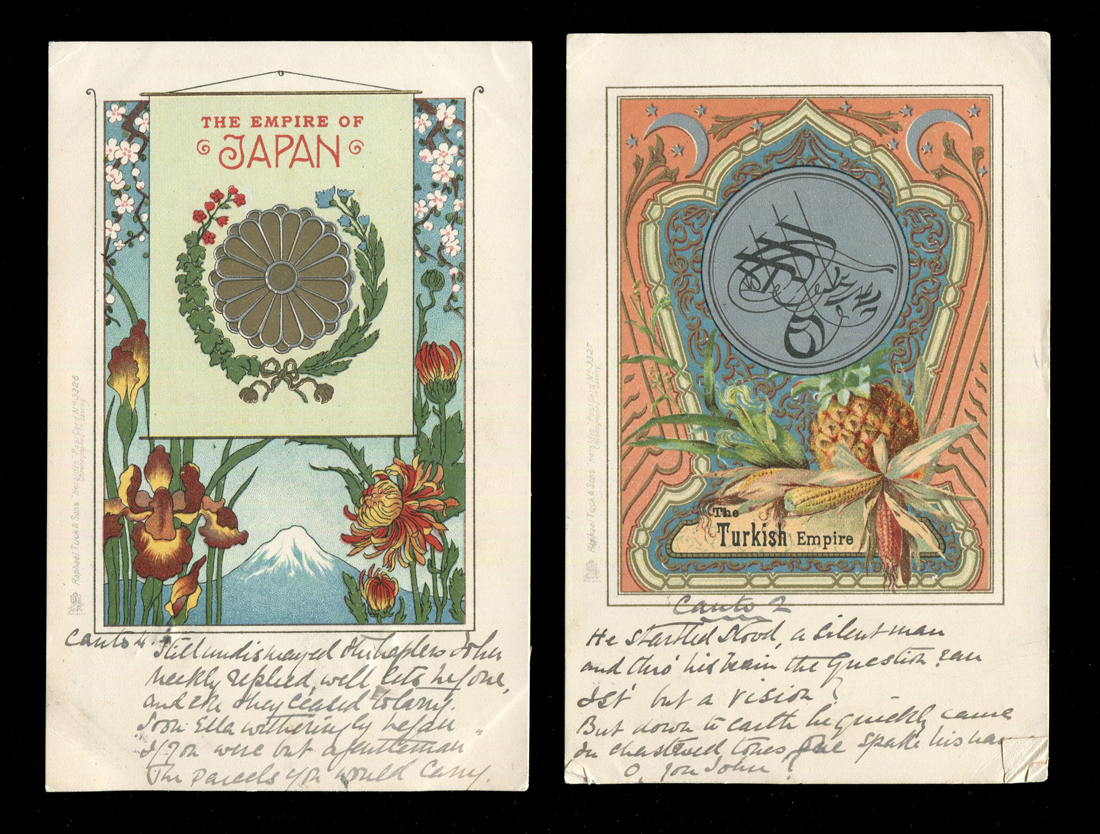 THE EMPIRE OF
JAPAN
Raphael Tuck & Sons "Heraldic" Postcard No 3326
Canto 4. Still undismayed the hapless John
Meekly replied, well lets be gone,
and ere they ceased to tarry.
Soon Ella witheringly began
If you were but a gentleman"
The parcels you would carry.
The
Turkish Empire
Raphael Tuck & Sons "Heraldic" Postcard No 3327
Canto 2
He startled stood, a silent man
and thro' his brain the Question ran
Ist' but a vision?
But down to earth he quickly came
In chastened tones she spake his
O, you John!